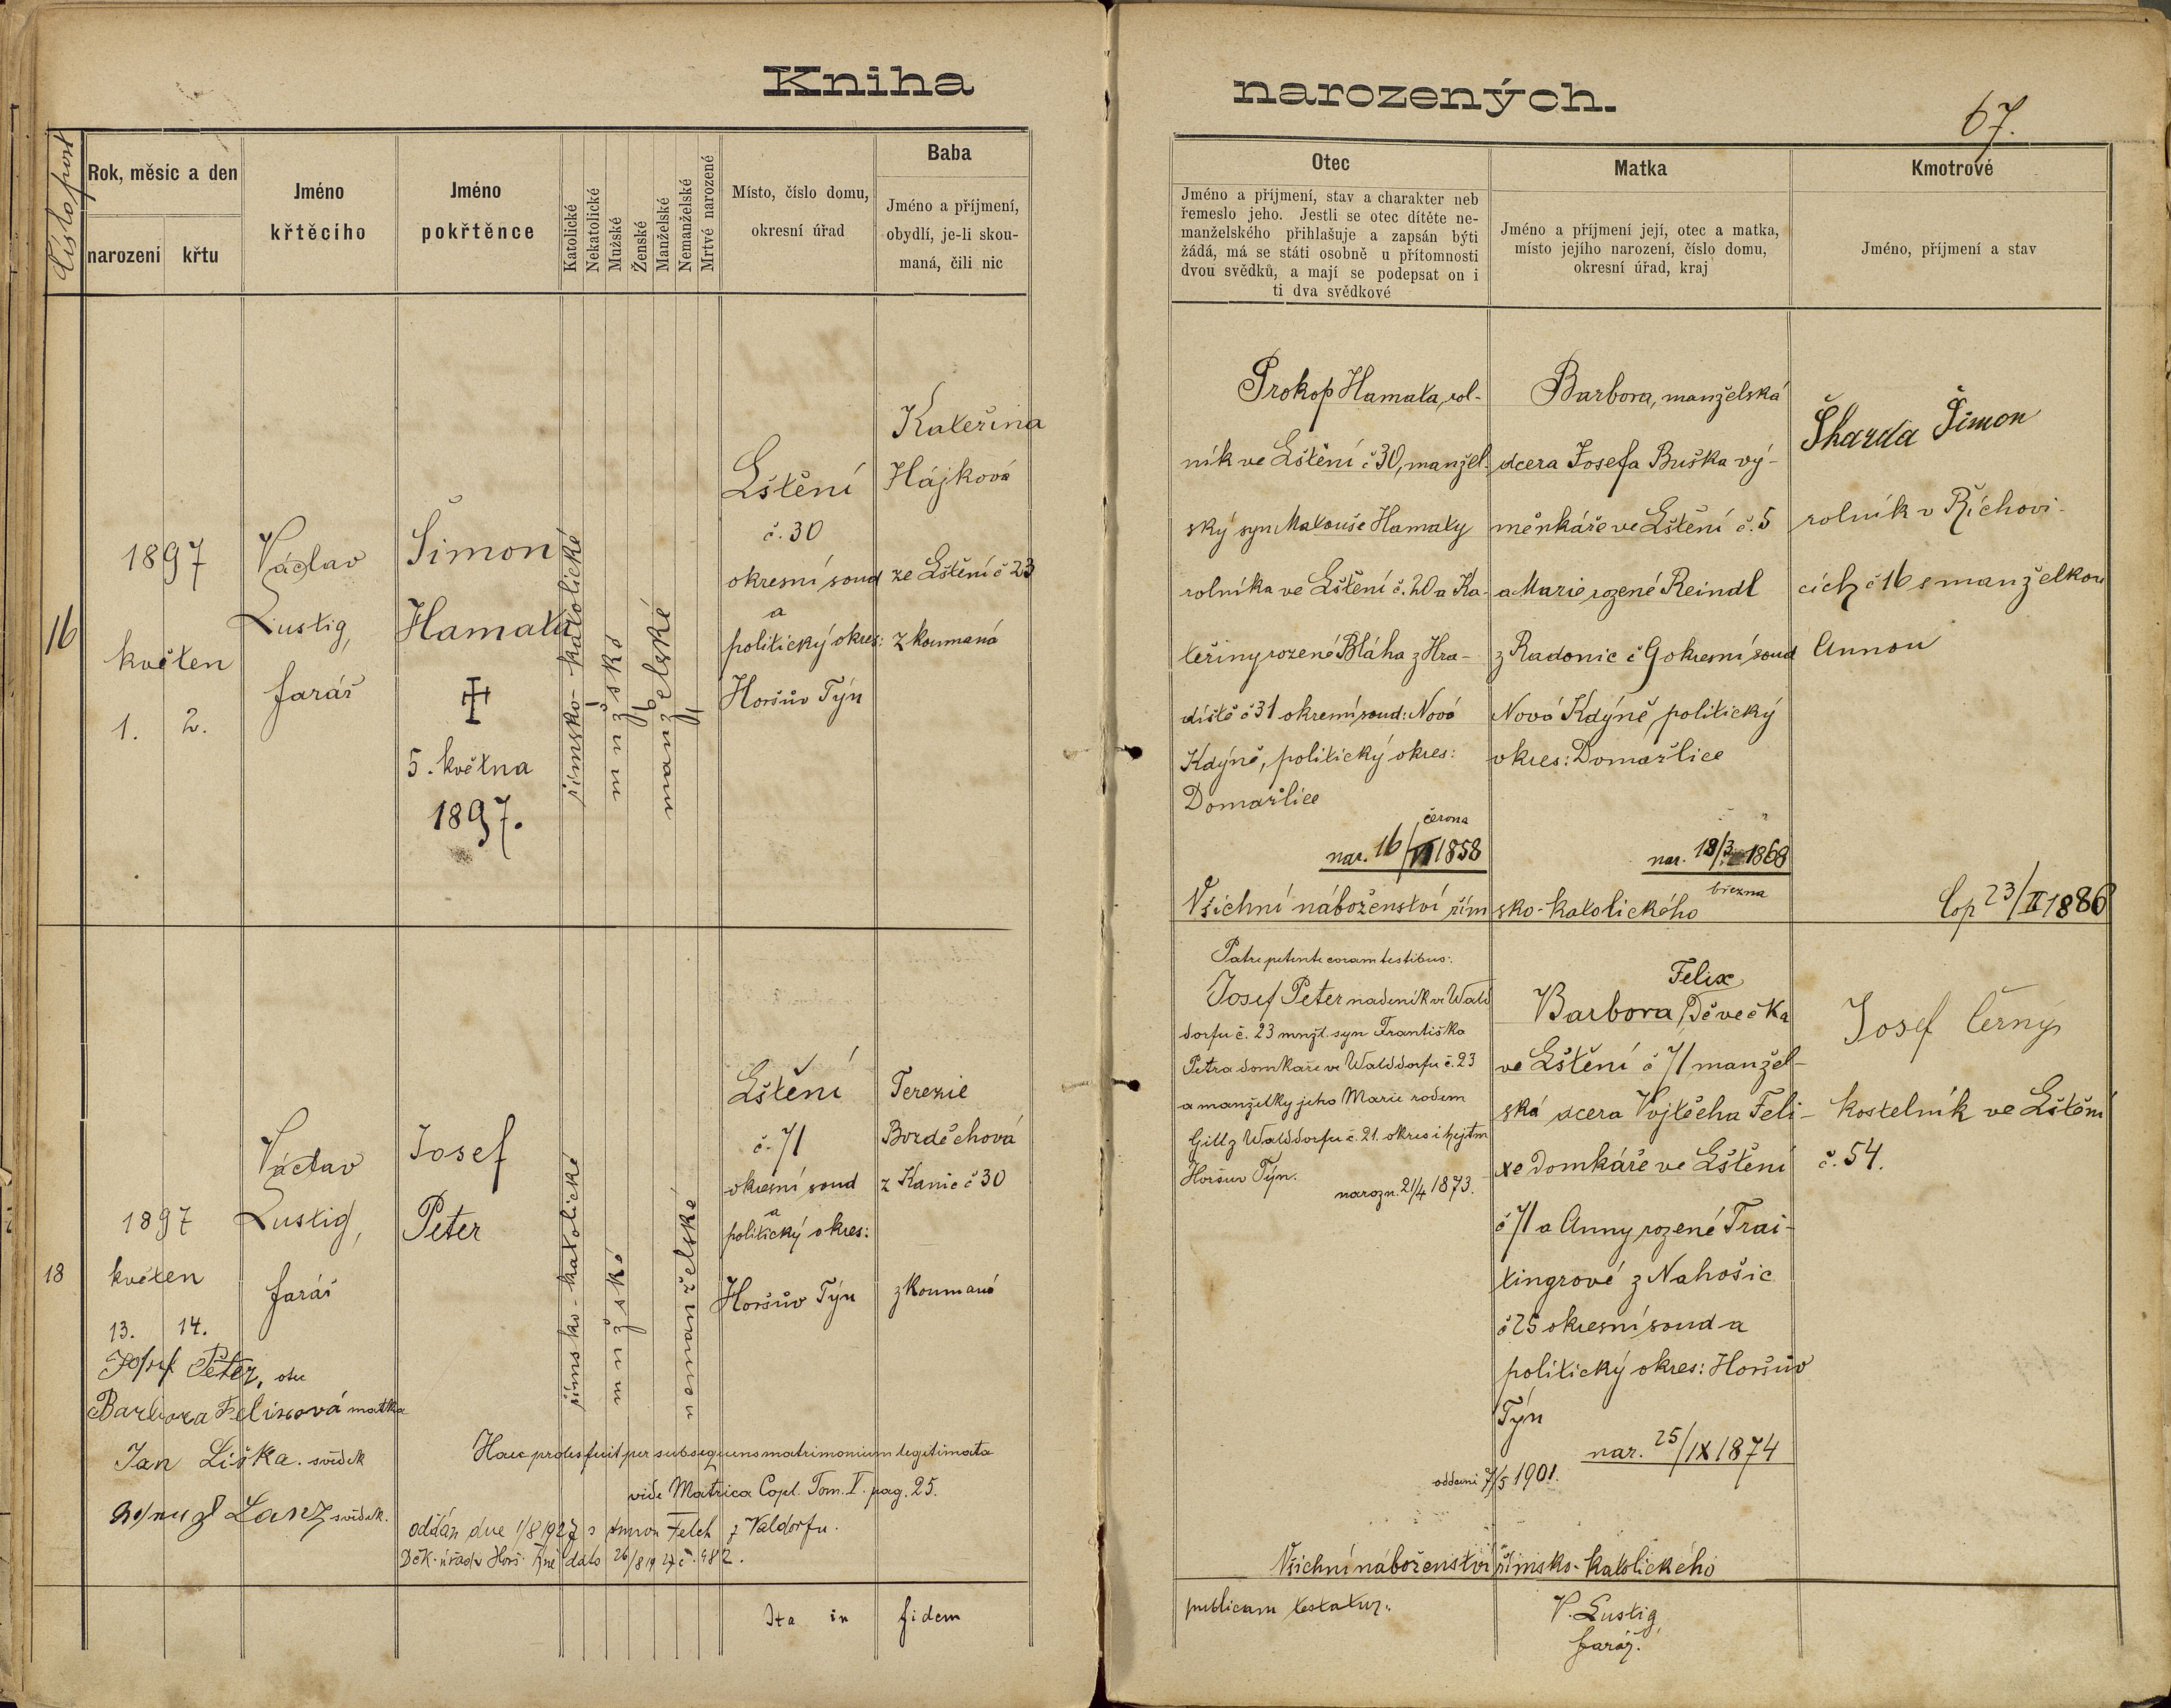 Kniha
narozených.
67.
Číslo post
Rok, měsíc a den
narození
křtu
Jméno
křtěcího
Jméno
pokřtěnce
Katolické
Nekatolické
Mužské
Ženské
Manželské
Nemanželské
Mrtvé narozené
Místo, číslo domu,
okresní úřad
Baba
Jméno a příjmení,
obydlí, je-li skou-
maná, čili nic
Otec
Jméno a příjmení, stav a charakter neb
řemeslo jeho. Jestli se otec dítěte ne-
manželského přihlašuje a zapsán býti
žádá, má se státi osobně u přítomnosti
dvou svědků, a mají se podepsat on i
ti dva svědkové
Matka
Jméno a příjmení její, otec a matka,
místo jejího narození, číslo domu,
okresní úřad, kraj
Kmotrové
Jméno, příjmení a stav
16
1897
květen
1. 2.
Václav
Lustig,
farář
Šimon
Hamata
5. května
1897.
římsko-katolické
mužské
manželské
Lštění
č. 30
okresní soud
a
politický okres:
Horšův Týn
Kateřina
Hájková
ze Lštění č 23
zkoumaná
Prokop Hamata, rol-
ník ve Lštění č 30, manžel-
ský syn Matouše Hamaty
rolníka ve Lštění č. 20 a Ka-
teřiny rozené Bláha z Hra-
diště č 31 okresní soud: Nová
Kdýně, politický okres:
Domažlice
června
nar. 16/VI 1858
Barbora, manželská
dcera Josefa Buška vý-
měnkáře ve Lštění č. 5
a Marie rozené Reindl
z Radonic č 9 okresní soud
Nová Kdýně, politický
okres: Domažlice
nar. 18/3 1868
března
Škarda Šimon
rolník v Říchovi-
cích č 16 s manželkou
Annou
Všichní náboženství římsko-katolického
Cop 23/II 1886
18
1897
květen
13. 14.
Václav
Lustig,
farář
Josef
Peter
římsko-katolické
mužské
nemanželské
Lštění
č. 71
okresní soud
a
politický okres:
Horšův Týn
Terezie
Bozděchová
z Kanic č 30
zkoumaná
Josef Peter, otec
Barbora Felixová matka
Jan Liška. svědek
Lanz svědek.
Haec proles fuit per subsequens matrimonium legitimata
vide Matrica Copl. Tom. V. pag. 25.
oddán dne 1/8 1927 s Annou Felch z Valdorfu.
Děk. úřad v Horš. Týně dato 26/8 1927 č. 982.
Patre petente coram testibus:
Josef Peter nadeník ve Wald
dorfu č. 23 mnžl. syn Františka
Petra domkaře ve Walddorfu č. 23
a manželky jeho Marie rodem
Gill z Walddorfu č. 21. okres i hejtm
Horšuv Týn.
narozn. 21/4 1873.
Felix
Barbora, Děvečka
ve Lštění č 71 manžel-
ská dcera Vojtěcha Feli-
xe domkáře ve Lštění
č 71 a Anny rozené Trai-
tingrové z Nahošic
č 25 okresní soud a
politický okres: Horšův
Týn
nar. 25/IX 1874
oddani 7/5 1901.
Josef Černý
kostelník ve Lštění
č. 54.
Všichní náboženství římsko-katolického
Ita in fidem
publicam testatur:
V. Lustig,
farář.